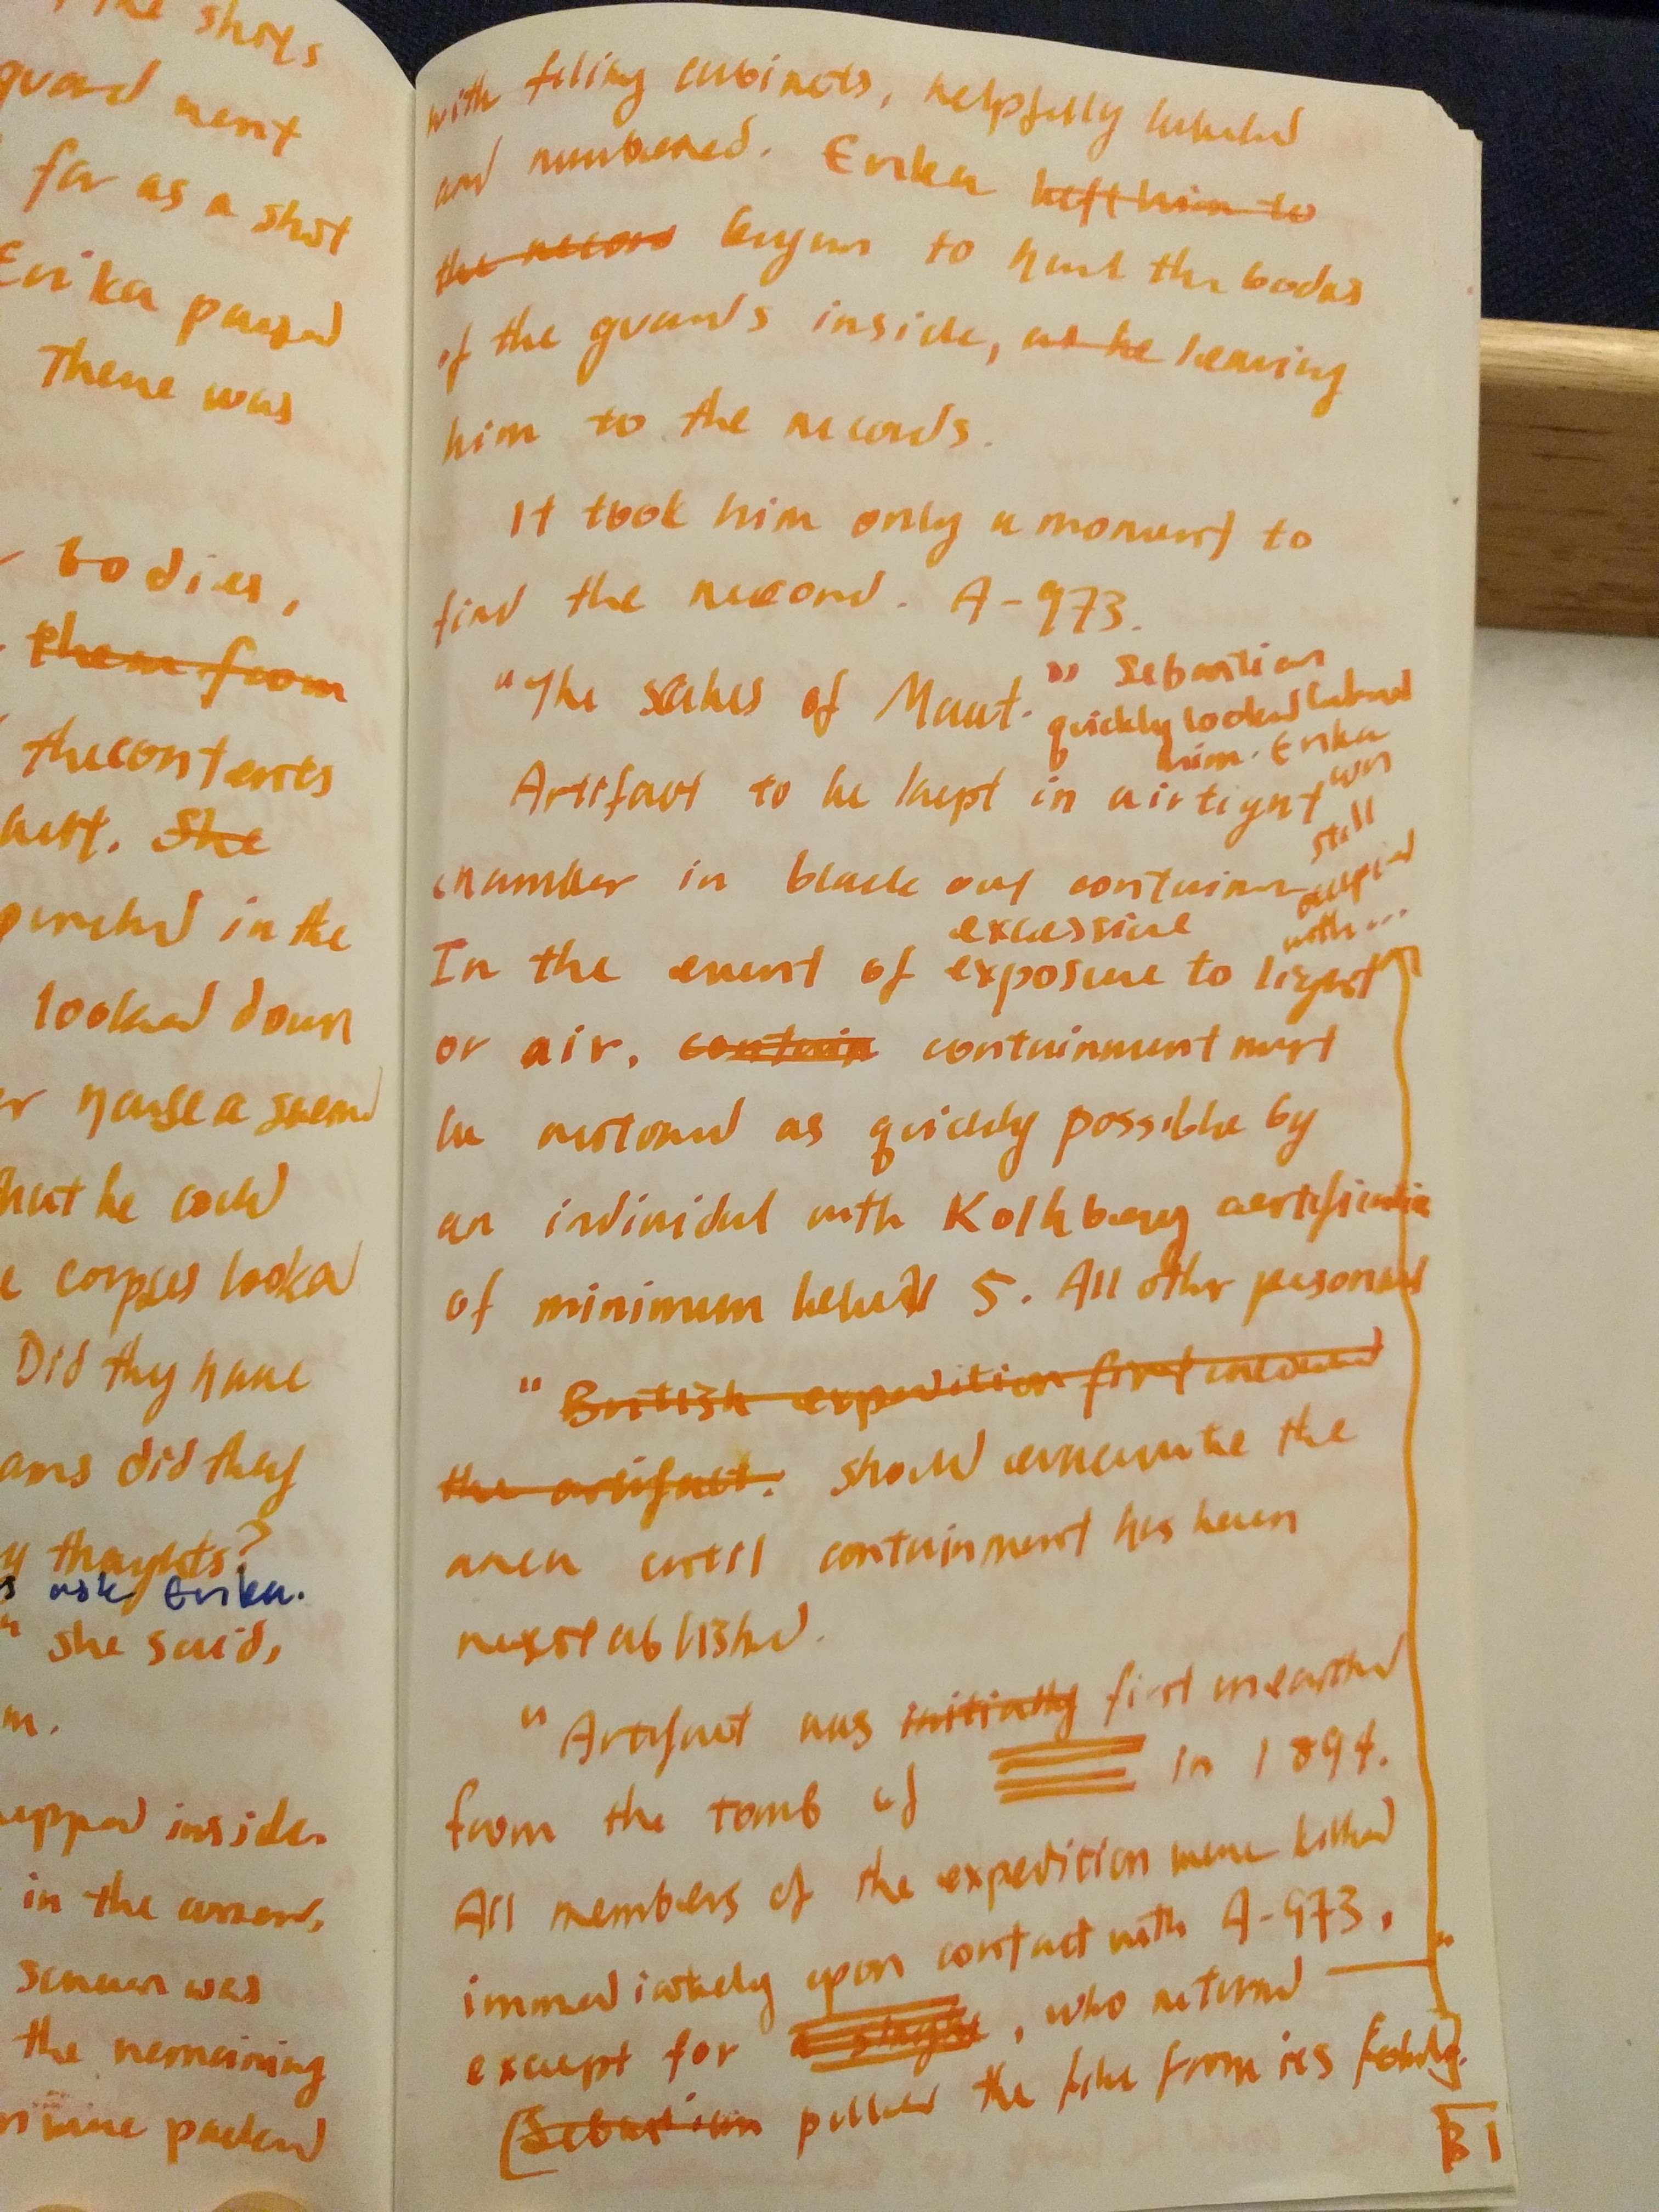 the shots
guard went
far as a shot
Erika paused
There was
bodies,
them from
the contents
She
perched in the
looked down
nausea
that he could
corpses looked
Did they have
did they
thoughts?
ask Erika.
she said,
inside
in the
was
the remaining
packed
with filing cabinets, helpfully labeled
and numbered. Erika left him to
the record began to haul the bodies
of the guards inside, as he leaving
him to the records.
It took him only a moment to
find the record. A-973.
"The scales of Maat." Sebastian
quickly looked behind
him. Erika
was
still
occupied
with...
Artifact to be kept in airtight
chamber in black out container
excessive
In the event of exposure to light
or air, contain containment must
be restored as quickly possible by
an individul with Kolhberg certification
of minimum level 5. All other personel
"British expedition first
the artifact. should evacuate the
area until containment has been
reestablished.
"Artifact was initially first unearthed
from the tomb of in 1894.
All members of the expedition were killed
immediately upon contact with A-973,
except for a single, who returned — "
(Sebastian pulled the file from its folder)
B1